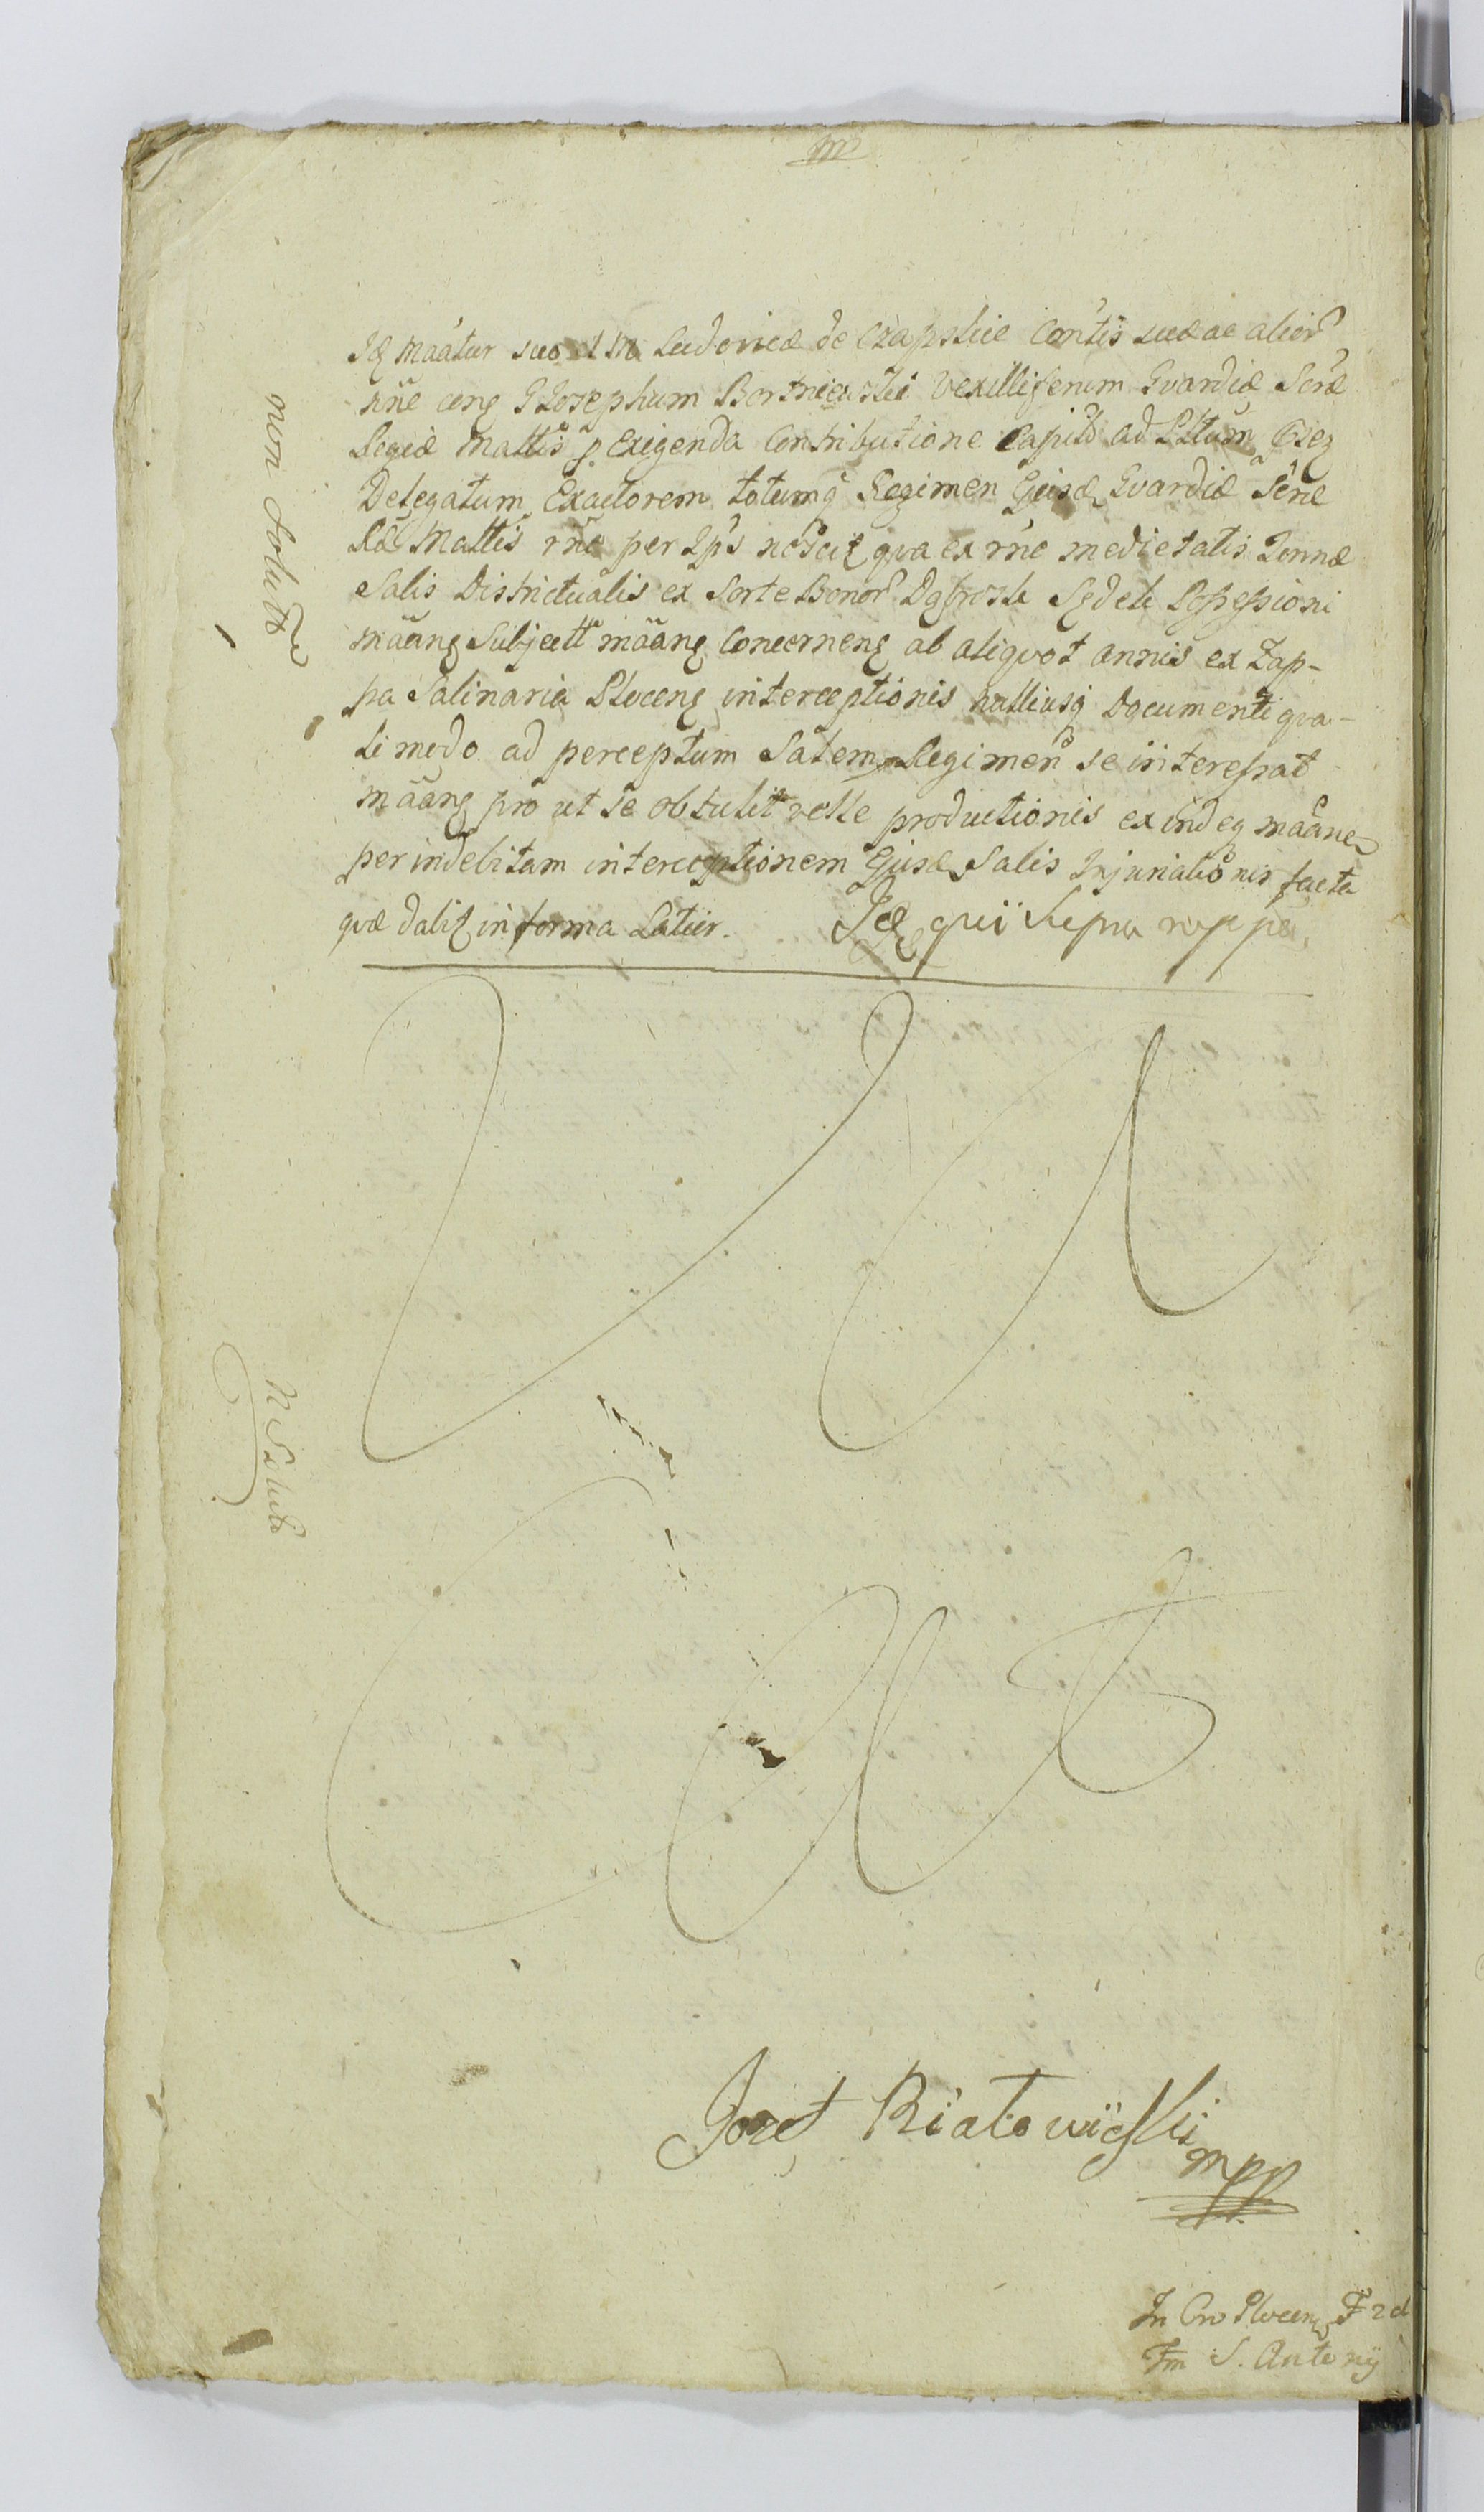 mp
Idq maatur suo et Ludovicæ de Czapskie Contis suæ ac alior
nne cong G Josephum Bortnicuski Vexilliferum Gvardiæ Sernæ
Regiæ Mattis p Exigenda Contributione Capitd ad Plltum
Delegatum Exactorem totumq Regimen Ejusdq Gvardiæ Serne
Ræ Mattis rne per Ips qva ex rne medietatis Tonnæ
Salis Districtualis ex Sorte Bonor Sqdek Possessioni
mäang Subjectt mäang Concerneng ab aliqvot annis ex Zup-
pa Salinaria Ploceng interceptionis nulliusq Documenti qva-
li modo ad perceptum Salem Regimen se interessat
mäang pro ut se obtulit velle productionis exindeq mäane
per indebitam interceptionem Ejusdq Salis Injuriationis facta
qvæ daliz in forma Latier. Idq qui supra mppa
non Solutt
N Solutt
Vacat
Jozef Białowieski
mpp
In Cro Ploceng F 2 d
Fm S. Antonij